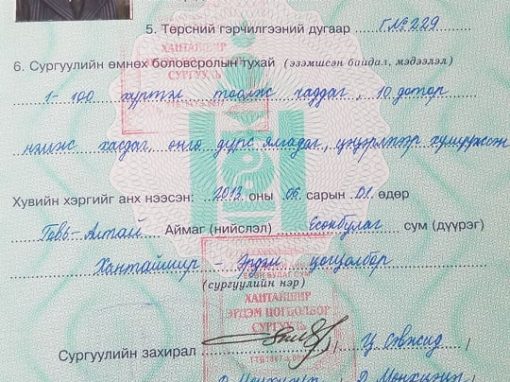 5. Төрсний гэрчилгээний дугаар Г№229
6. Сургуулийн өмнөх боловсролын тухай (эзэмшсэн байдал, мэдээлэл)
1-100 хүртэл тоолж чаддаг, 10 дотор
нэмж хасдаг, өнгө дүрс ялгадаг, цэцэрлэгээр хүмүүжсэн
Хувийн хэргийг анх нээсэн: 2013 оны 06 сарын 01 өдөр
Говь-Алтай Аймаг (нийслэл) Есөнбулаг сум (дүүрэг)
Хантайшир - Эрдэм цогцолбор
(сургуулийн нэр)
ХАНТАЙШИР
ЭРДЭМ ЦОГЦОЛБОР
СУРГУУЛЬ
Сургуулийн захирал